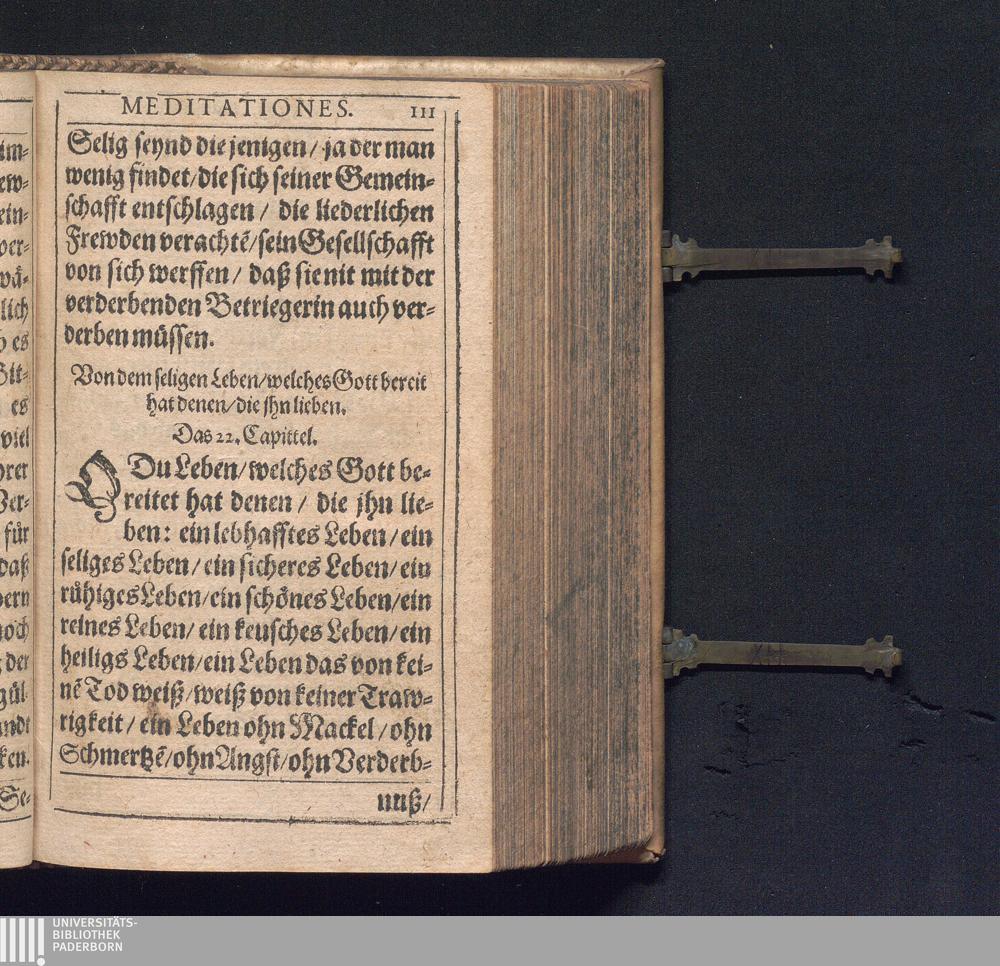 MEDITATIONES. 111
Selig seynd die jenigen / ja der man
wenig findet / die sich seiner Gemein-
schafft entschlagen / die liederlichen
Frewden verachtẽ / sein Gesellschafft
von sich werffen / daß sie nit mit der
verderbenden Betriegerin auch ver-
derben müssen.
Von dem seligen Leben / welches Gott bereit
hat denen / die jhn lieben.
Das 22. Capittel.
O Du Leben / welches Gott be-
reitet hat denen / die jhn lie-
ben: ein lebhafftes Leben / ein
seliges Leben / ein sicheres Leben / ein
růhiges Leben / ein schönes Leben / ein
reines Leben / ein keusches Leben / ein
heiligs Leben / ein Leben das von kei-
nẽ Tod weiß / weiß von keiner Traw-
rigkeit / ein Leben ohn Mackel / ohn
Schmertzẽ / ohn Angst / ohn Verderb-
nuß /
im-
ew-
ein-
ver-
wä-
lich
es
es
viel
hrer
Ver-
für
daß
noch
der
ken.
Se-
UNIVERSITÄTS-
BIBLIOTHEK
PADERBORN